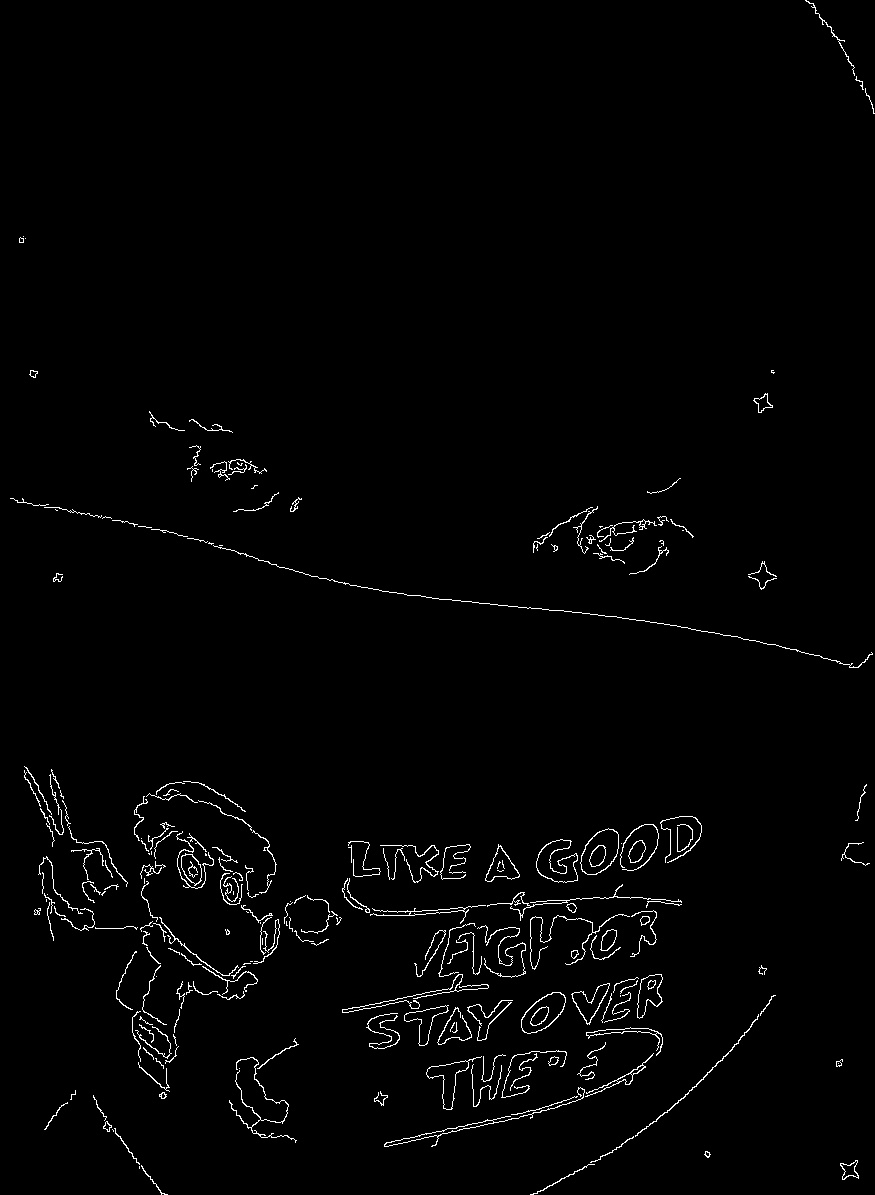 LIKE A GOOD
NEIGHBOR
STAY OVER
THERE